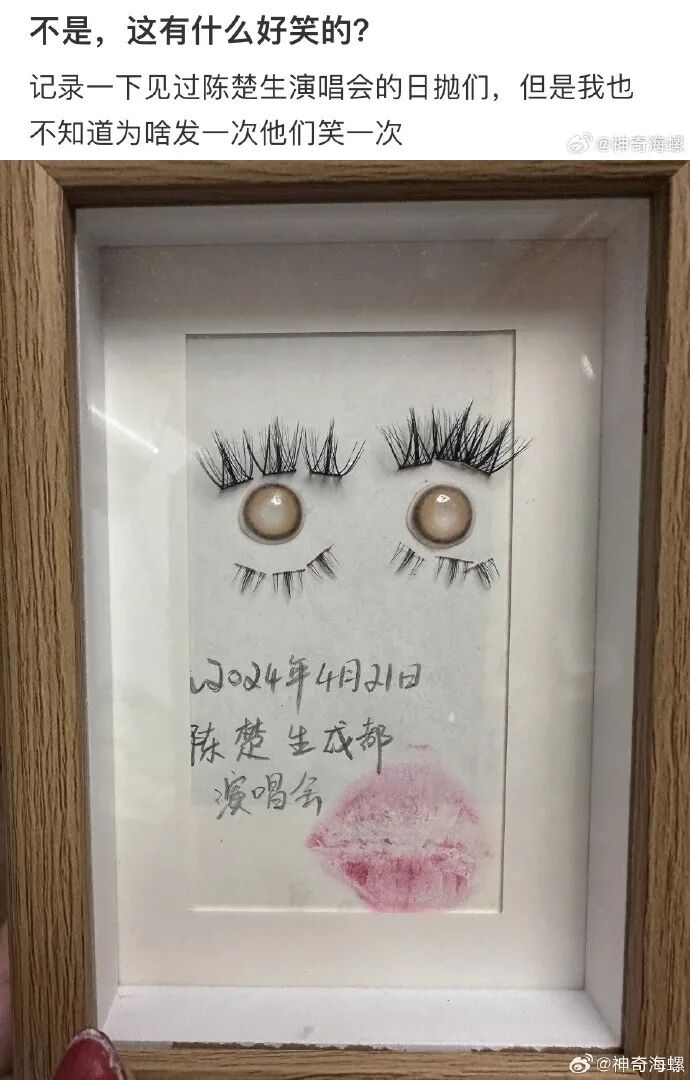 不是，这有什么好笑的？
记录一下见过陈楚生演唱会的日抛们，但是我也
不知道为啥发一次他们笑一次
@神奇海螺
2024年4月21日
陈楚生成都
演唱会
@神奇海螺